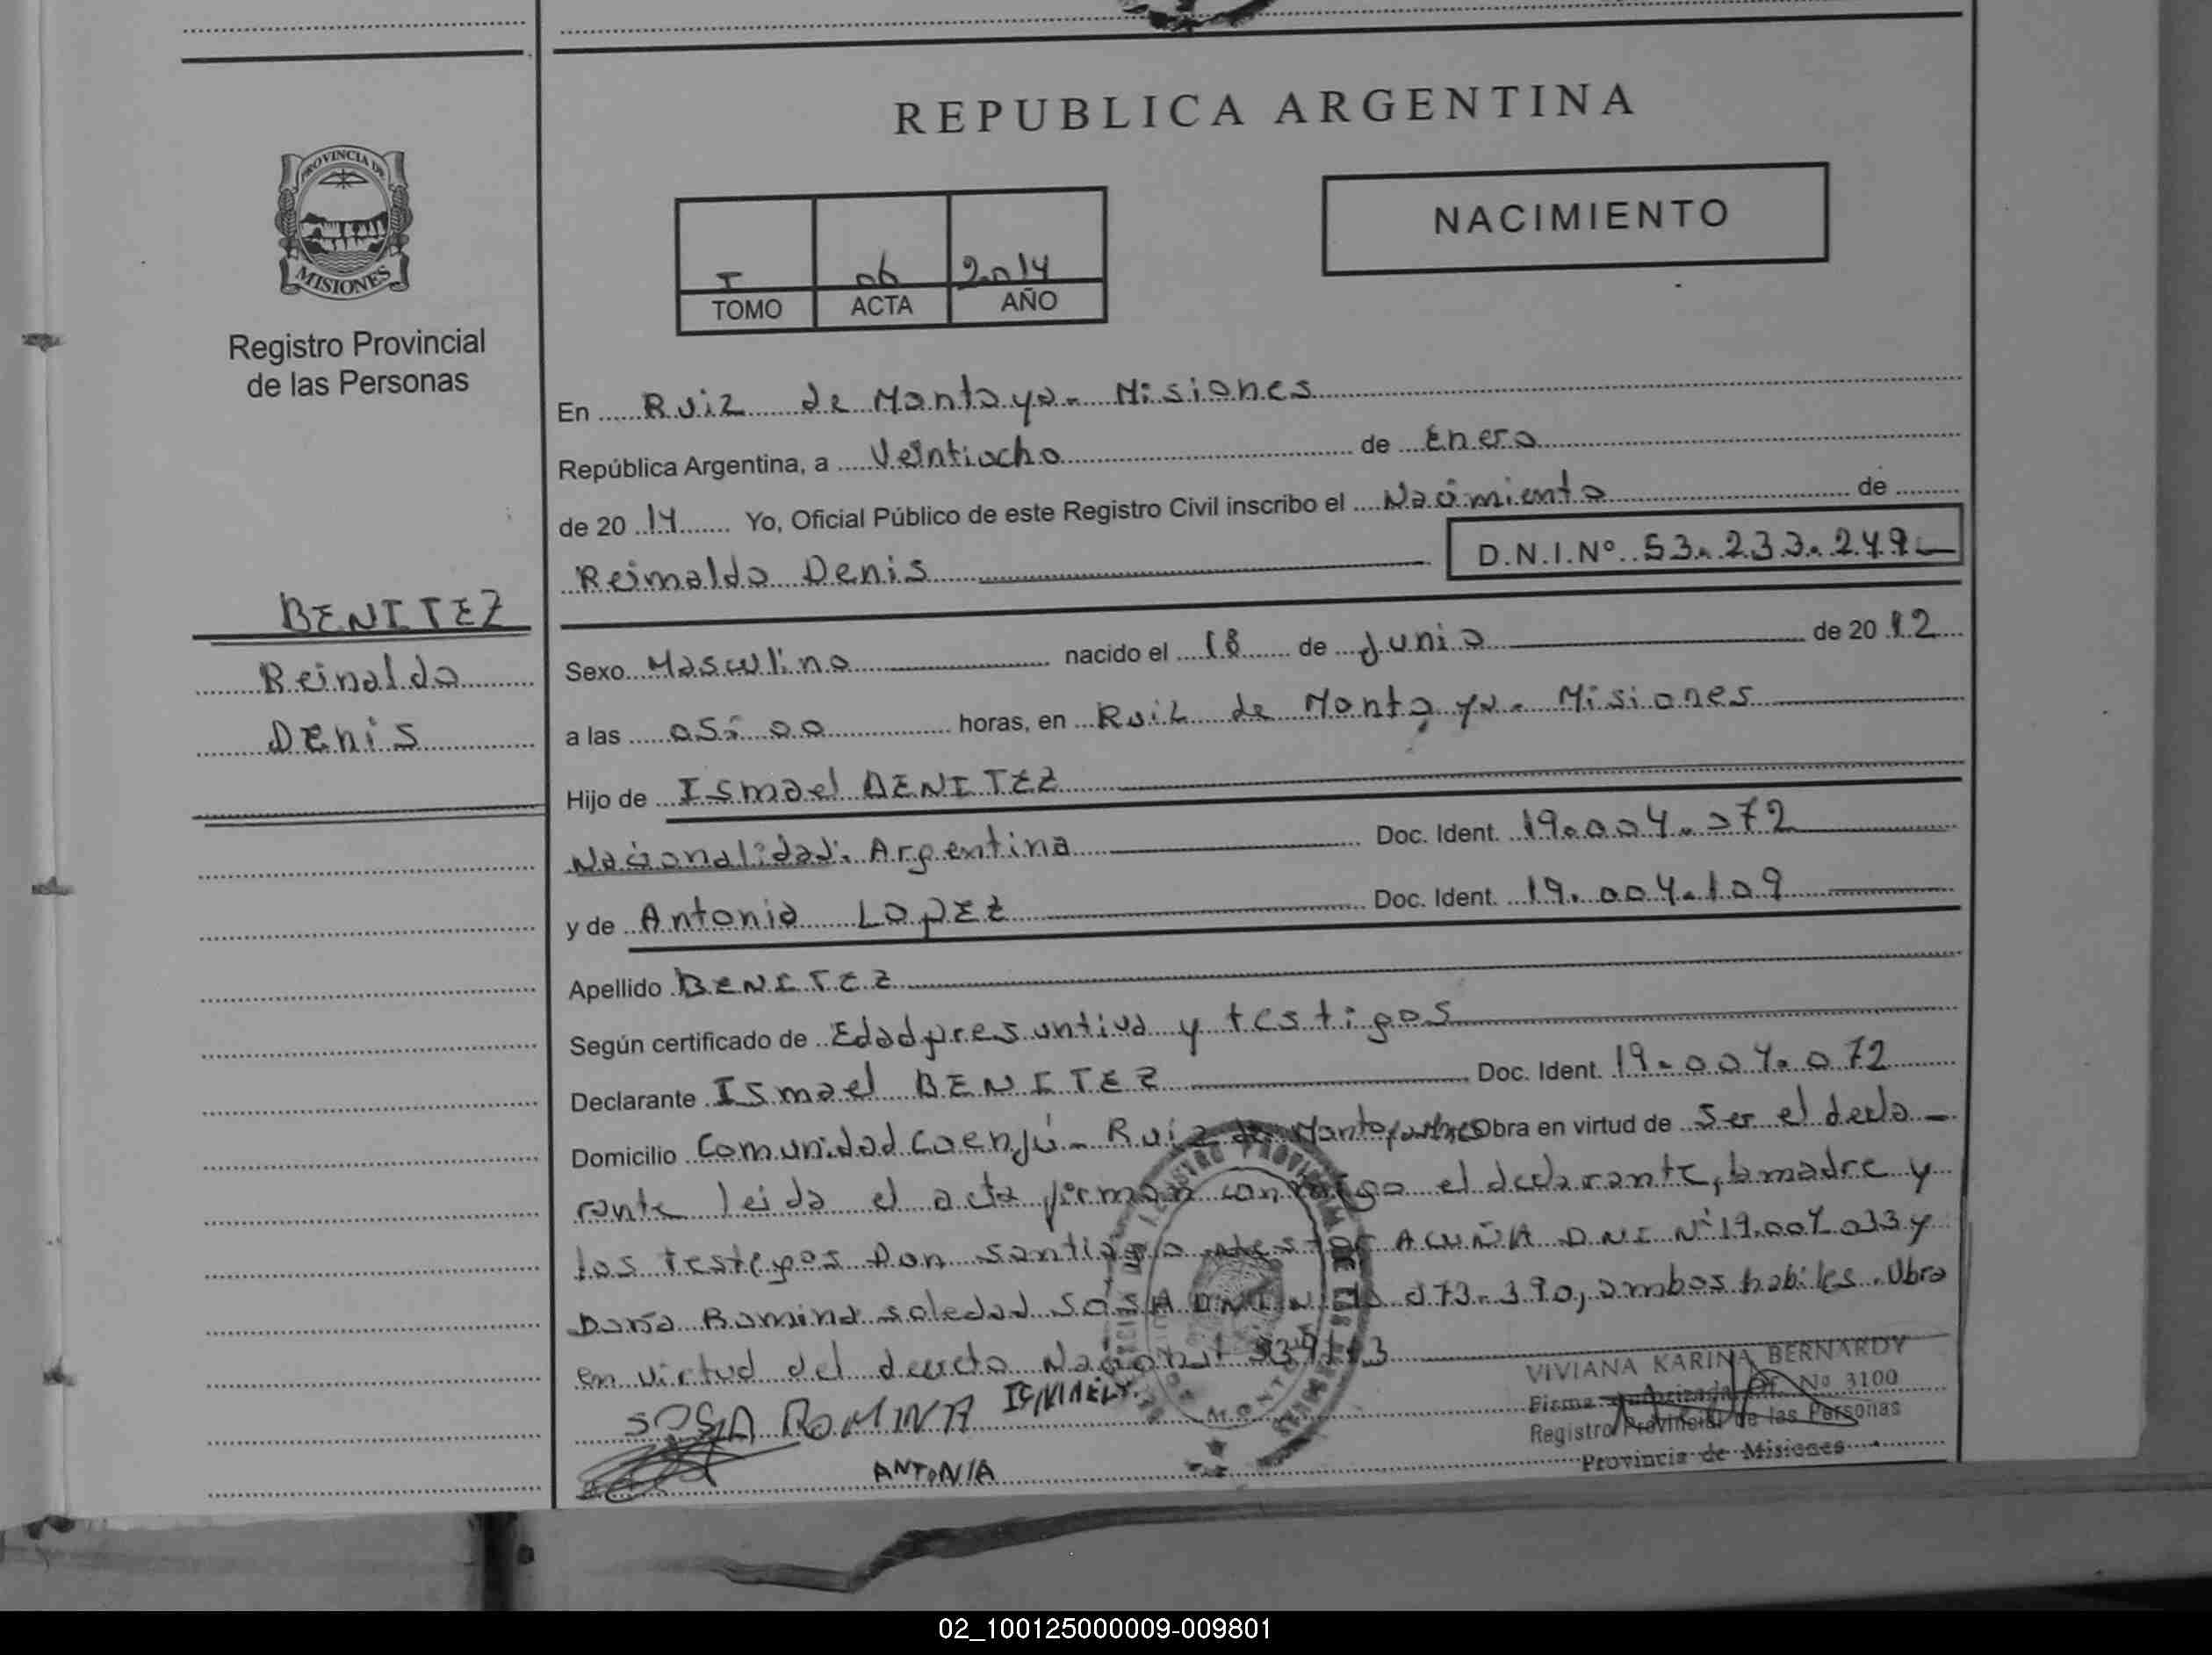 REPUBLICA ARGENTINA
PROVINCIA DE
MISIONES
Registro Provincial
de las Personas
NACIMIENTO
I 06 2014
TOMO ACTA AÑO
En Ruiz de Montoya - Misiones
República Argentina, a Veintiocho de Enero
de 20 14 Yo, Oficial Público de este Registro Civil inscribo el Nacimiento de
Reinaldo Denis D.N.I.Nº 53.233.249
BENITEZ
Reinaldo
Denis
Sexo Masculino nacido el 18 de Junio de 20 12
a las 05:00 horas, en Ruiz de Montoya - Misiones
Hijo de Ismael BENITEZ
Nacionalidad: Argentina Doc. Ident. 19.004.072
y de Antonia LOPEZ Doc. Ident. 19.004.109
Apellido BENITEZ
Según certificado de Edad presuntiva y testigos
Declarante Ismael BENITEZ Doc. Ident. 19.004.072
Domicilio Comunidad Caenjú - Ruiz de Montoya Obra en virtud de Ser el decla-
rante leida el acta firman conmigo el declarante, la madre y
los testigos Don Santiago ACUÑA DNI Nº 19.004.033 y
Doña Romina Soledad SOSA DNI 073.390, ambos habiles. Obra
en virtud del decreto Nacional
SOSA ROMINA ISMAEL
ANTONIA
VIVIANA KARINA BERNARDY
Firma Autorizada Of. Nº 3100
Registro Provincial de las Personas
Provincia de Misiones
02_100125000009-009801